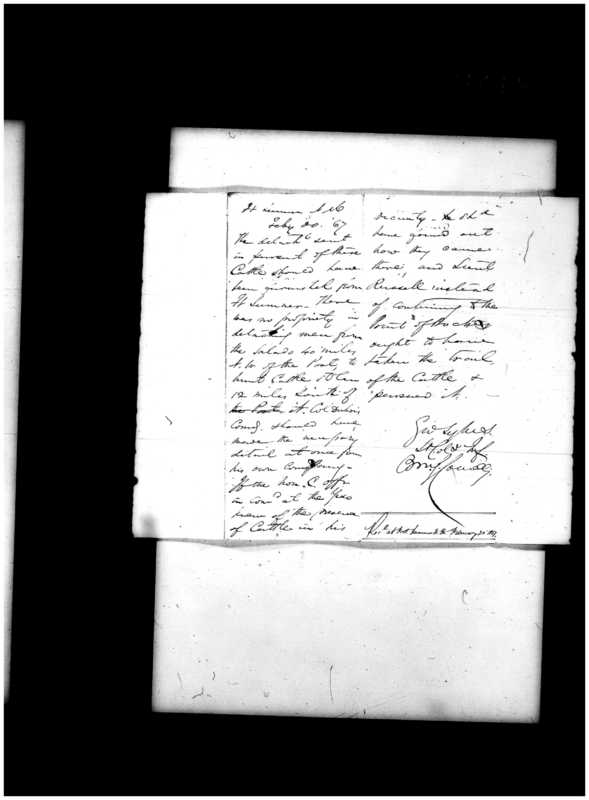 Ft Sumner N.M.
Feby 20. '67
The detach't sent
in pursuit of these
Cattle should have
been furnished from
Ft Sumner - There
was no propriety in
detaching men from
the Salado 40 miles
N. W. of the Post, to
hunt Cattle stolen
12 miles South of
it. Col
Comd'g. should have
made the necessary
detail at once from
his own Company -
If the non. C. offr
in com'd at the
knew of the presence
of Cattle in his
vicinity - he sh'd
have found out
how they came
there, and Lieut
Russell instead
of continuing to the
Point of Rocks
ought to have
taken the trail
of the Cattle &
pursued it. -
Geo Sykes
Lt Col 5 Inf
Comdg
Rec'd at Fort Sumner N.M. February 20 1867